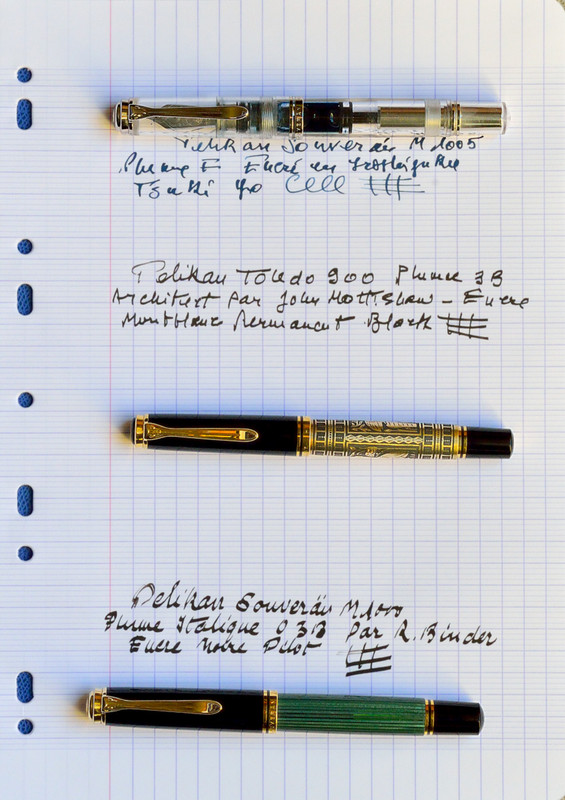 Pelikan Souverän M 1005
Plume F Encre
Tsuki yo
Pelikan Toledo 900 Plume 3B
Architect par John Mottishaw - Encre
Montblanc Permanent Black
Pelikan Souverän M1000
Plume Italique O3B par R. Binder
Encre Noire Pilot